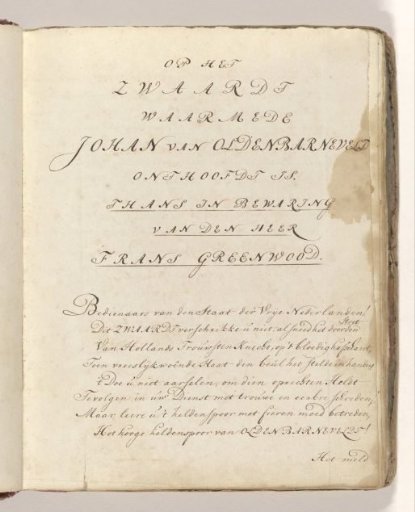 OP HET
ZWAARDT
WAARMEDE
JOHAN VAN OLDENBARNEVELD
ONTHOOFDT IS.
THANS IN BEWARING
VAN DEN HEER
FRANS GREENWOOD.
Bedienaars van den Staat der Vrije Nederlanden!
Dit ZWAARDT verschrikke u niet, al sneed het door den
Strot
Van Hollands Trouwsten Knecht, op't bloedigh Schavot,
Toen vreeslyk den beul her stelde in handen
't Doe u niet aarselen, om dien oprechten Heldt
Te volgen in uw Dienst met trouwe en eerbre schreden,
Maar leere u 't heldenspoor met fieren moed betreden,
Het hooge heldenspoor van OLDENBARNEVELDT!
Het meld